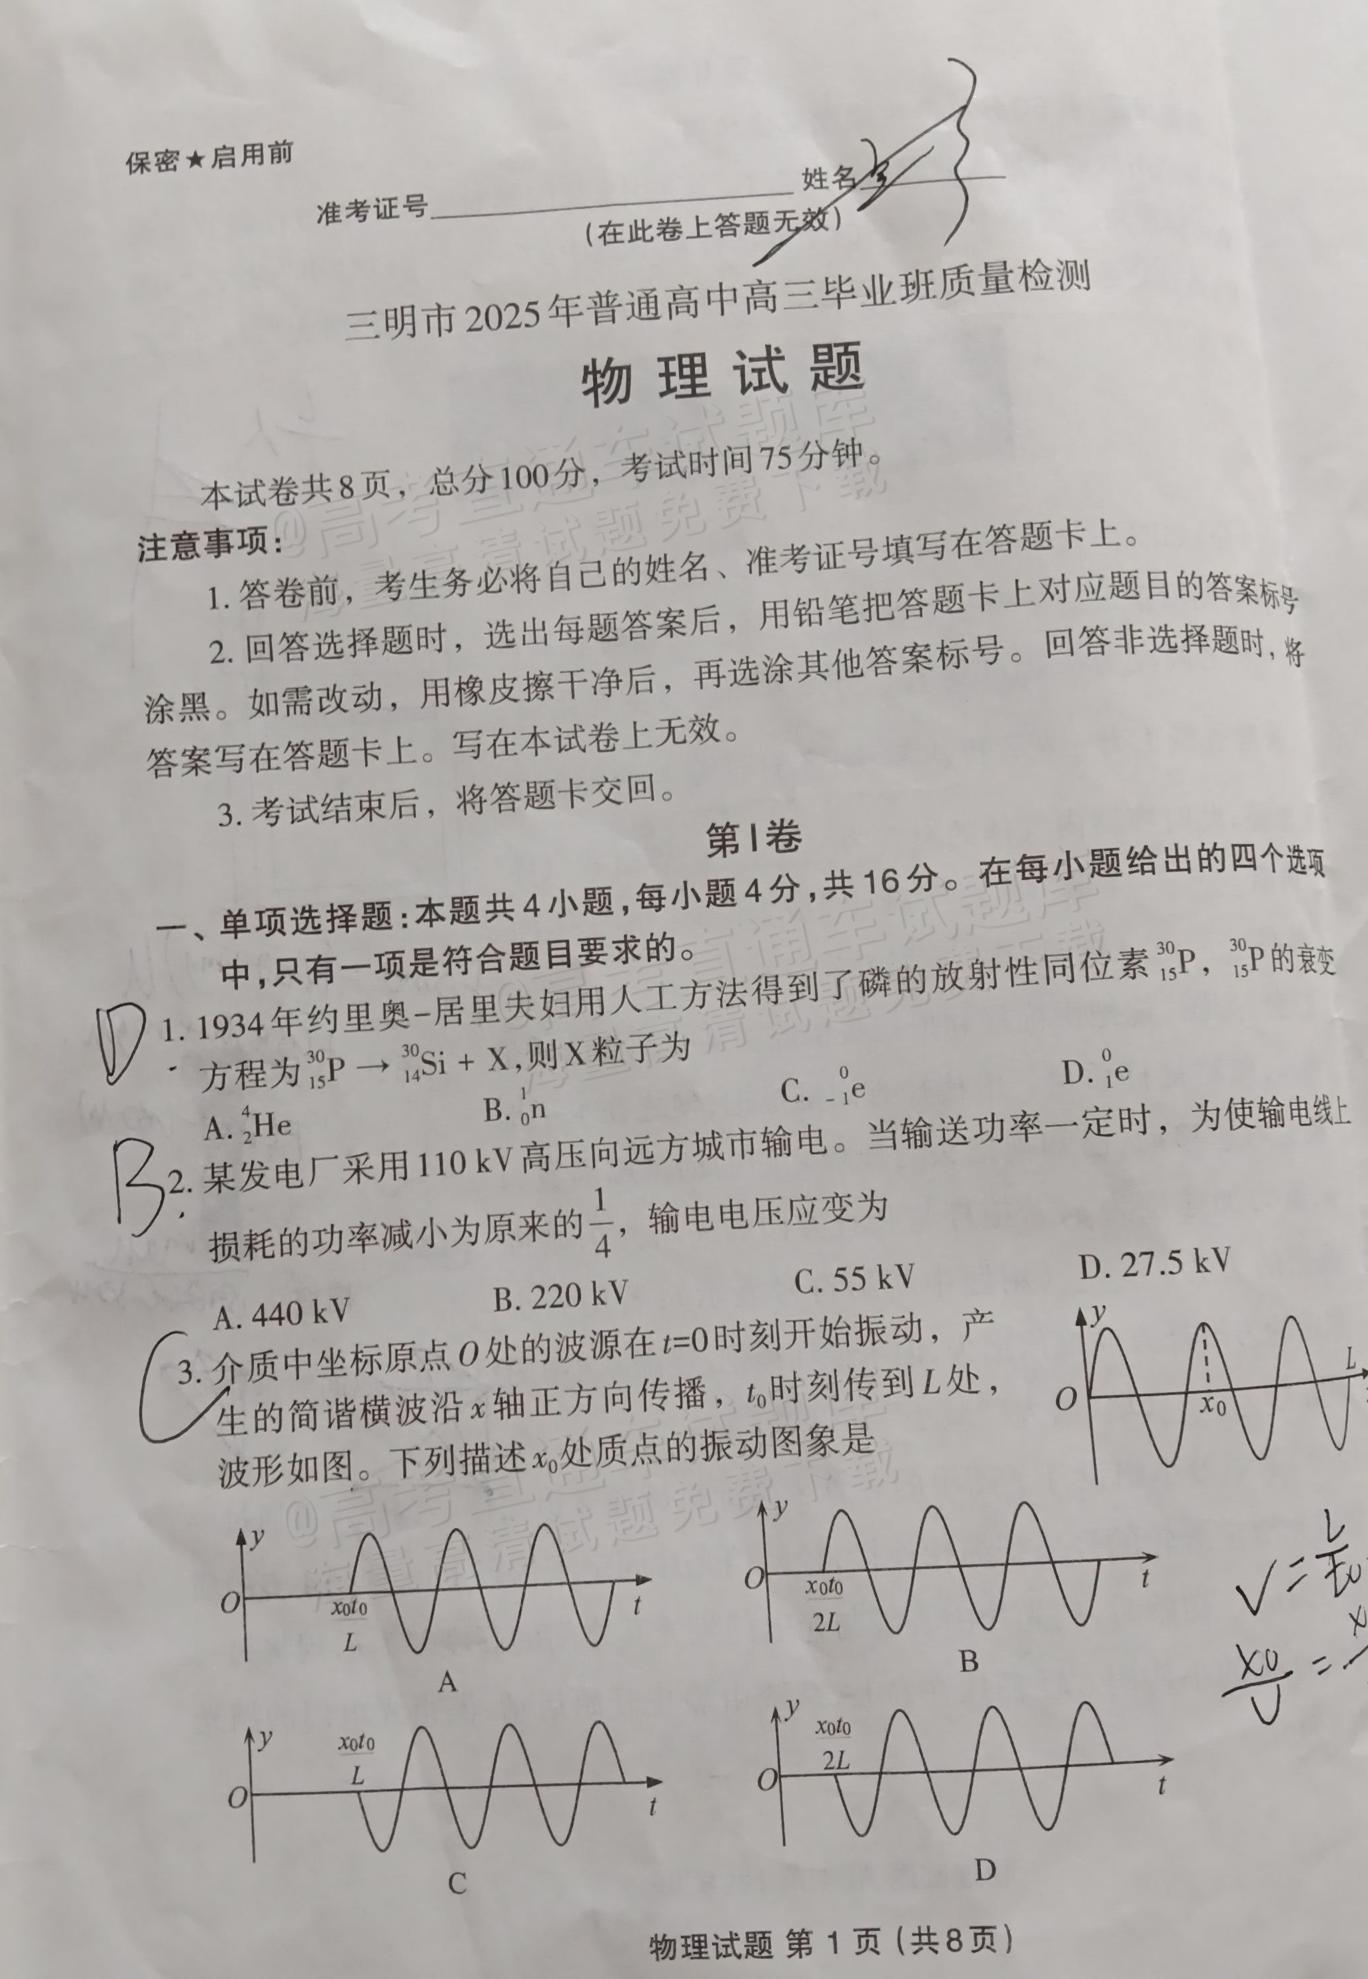 保密★启用前
准考证号 姓名
(在此卷上答题无效)
三明市2025年普通高中高三毕业班质量检测
物理试题
本试卷共8页，总分100分，考试时间75分钟。
注意事项：
1. 答卷前，考生务必将自己的姓名、准考证号填写在答题卡上。
2. 回答选择题时，选出每题答案后，用铅笔把答题卡上对应题目的答案标号
涂黑。如需改动，用橡皮擦干净后，再选涂其他答案标号。回答非选择题时，将
答案写在答题卡上。写在本试卷上无效。
3. 考试结束后，将答题卡交回。
第Ⅰ卷
一、单项选择题：本题共4小题，每小题4分，共16分。在每小题给出的四个选项
中，只有一项是符合题目要求的。
D 1. 1934年约里奥-居里夫妇用人工方法得到了磷的放射性同位素 ³⁰₁₅P，³⁰₁₅P的衰变
方程为 ³⁰₁₅P → ³⁰₁₄Si + X，则X粒子为
A. ⁴₂He B. ¹₀n C. ⁰₋₁e D. ⁰₁e
B 2. 某发电厂采用110 kV高压向远方城市输电。当输送功率一定时，为使输电线上
损耗的功率减小为原来的1/4，输电电压应变为
A. 440 kV B. 220 kV C. 55 kV D. 27.5 kV
C 3. 介质中坐标原点O处的波源在t=0时刻开始振动，产
生的简谐横波沿x轴正方向传播，t₀时刻传到L处，
波形如图。下列描述x₀处质点的振动图象是
y O x₀ L
y O x₀t₀/L t
A
y O x₀t₀/2L t
B
V = L/t₀
x₀/v =
y O x₀t₀/L t
C
y O x₀t₀/2L t
D
物理试题 第1页(共8页)
@高考直通车试题库
海量高清试题免费下载
@高考直通车试题库
海量高清试题免费下载
@高考直通车试题库
海量高清试题免费下载